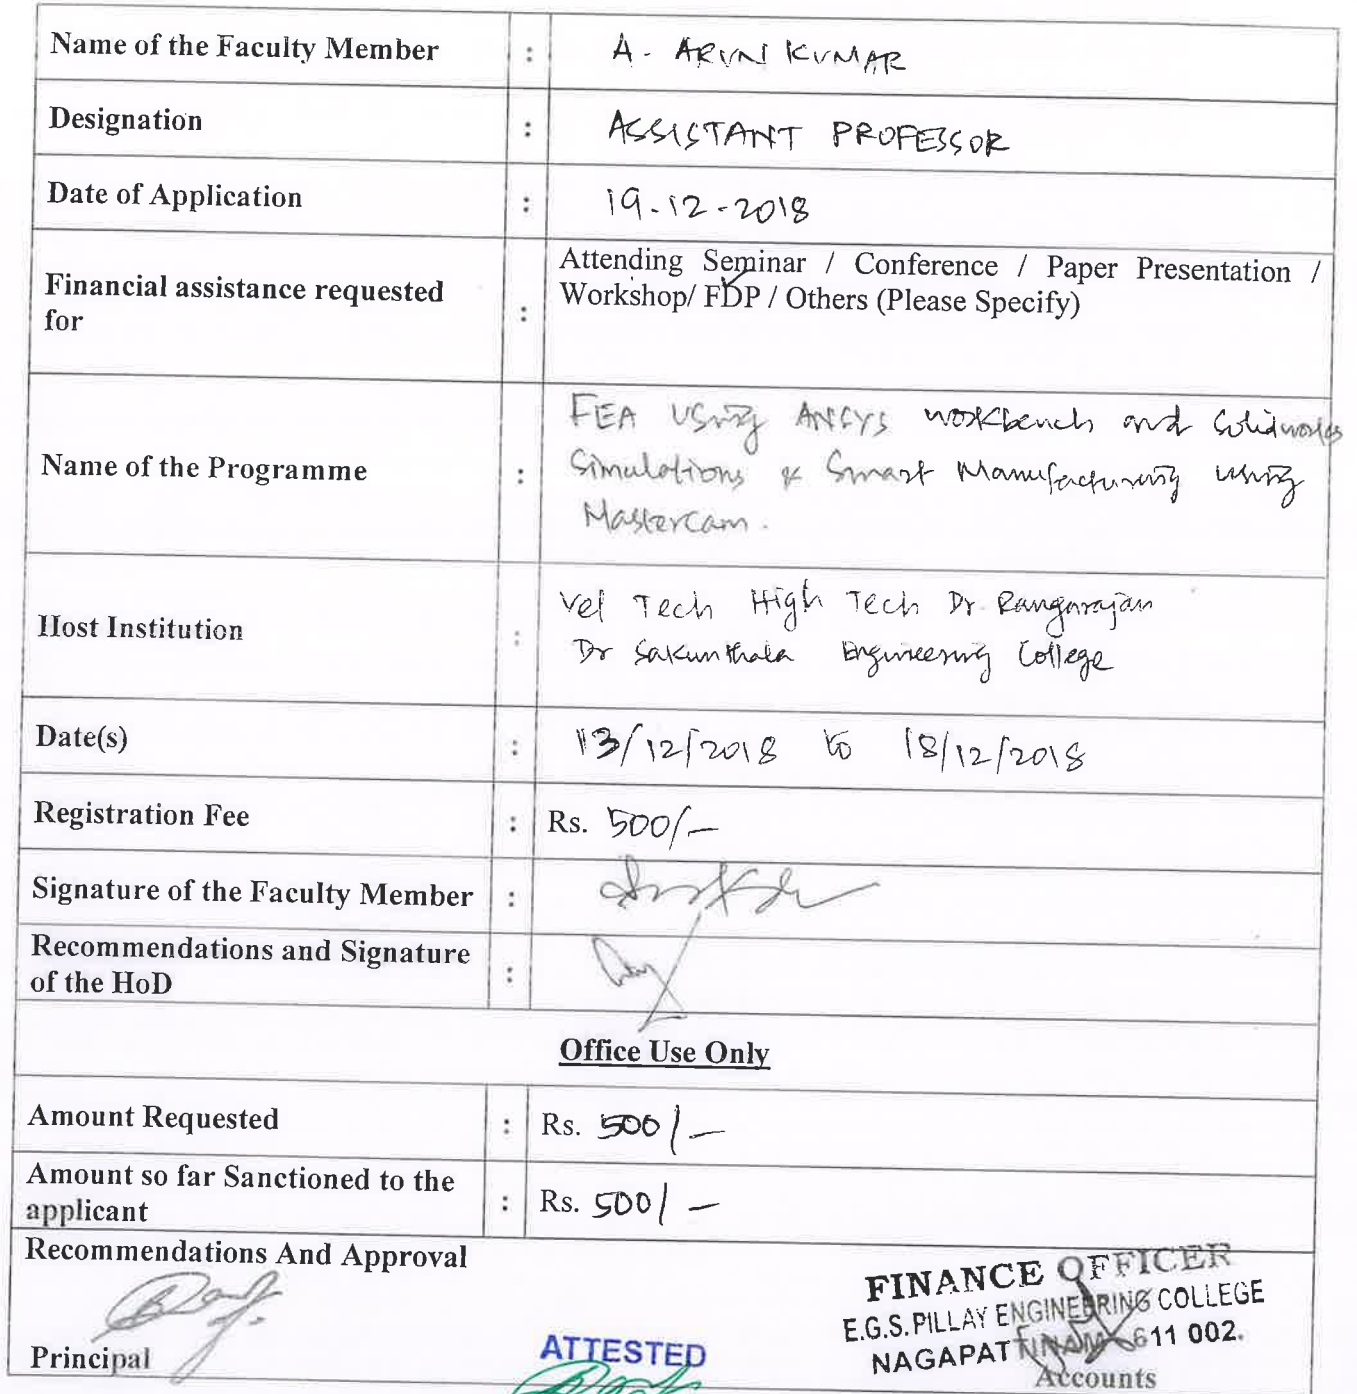 Name of the Faculty Member : A. ARUN KUMAR
Designation : ASSISTANT PROFESSOR
Date of Application : 19-12-2018
Financial assistance requested
for :
Attending Seminar / Conference / Paper Presentation /
Workshop/ FDP / Others (Please Specify)
Name of the Programme :
FEA Using ANSYS workbench and Solidworks
Simulations & Smart Manufacturing using
Mastercam.
Host Institution :
Vel Tech High Tech Dr. Rangarajan
Dr Sakunthala Engineering College
Date(s) : 13/12/2018 to 18/12/2018
Registration Fee : Rs. 500/-
Signature of the Faculty Member :
Recommendations and Signature
of the HoD :
Office Use Only
Amount Requested : Rs. 500/-
Amount so far Sanctioned to the
applicant : Rs. 500/-
Recommendations And Approval
FINANCE OFFICER
E.G.S. PILLAY ENGINEERING COLLEGE
NAGAPATTINAM 611 002.
Principal
ATTESTED
Accounts